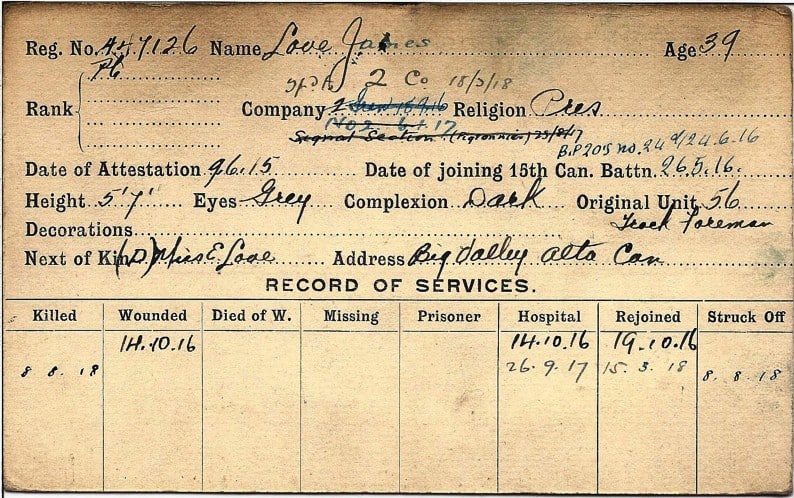 Reg. No. 447126 Name Love James Age 39
Pte
2 Co 18/3/18
Rank Company 2 Religion Pres
No 2 6.1.17
Signal Section (Pigeonnier) 23/8/17
B.P 205 no. 24 d/24.6.16
Date of Attestation 9.6.15 Date of joining 15th Can. Battn. 26.5.16.
Height 5'7" Eyes Grey Complexion Dark Original Unit 56
Decorations Track Foreman
Next of Kin (D) Miss E Love Address Big Valley Alta Can
RECORD OF SERVICES.
Killed Wounded Died of W. Missing Prisoner Hospital Rejoined Struck Off
14.10.16 14.10.16 19.10.16
8.8.18 26.9.17 15.3.18 8.8.18